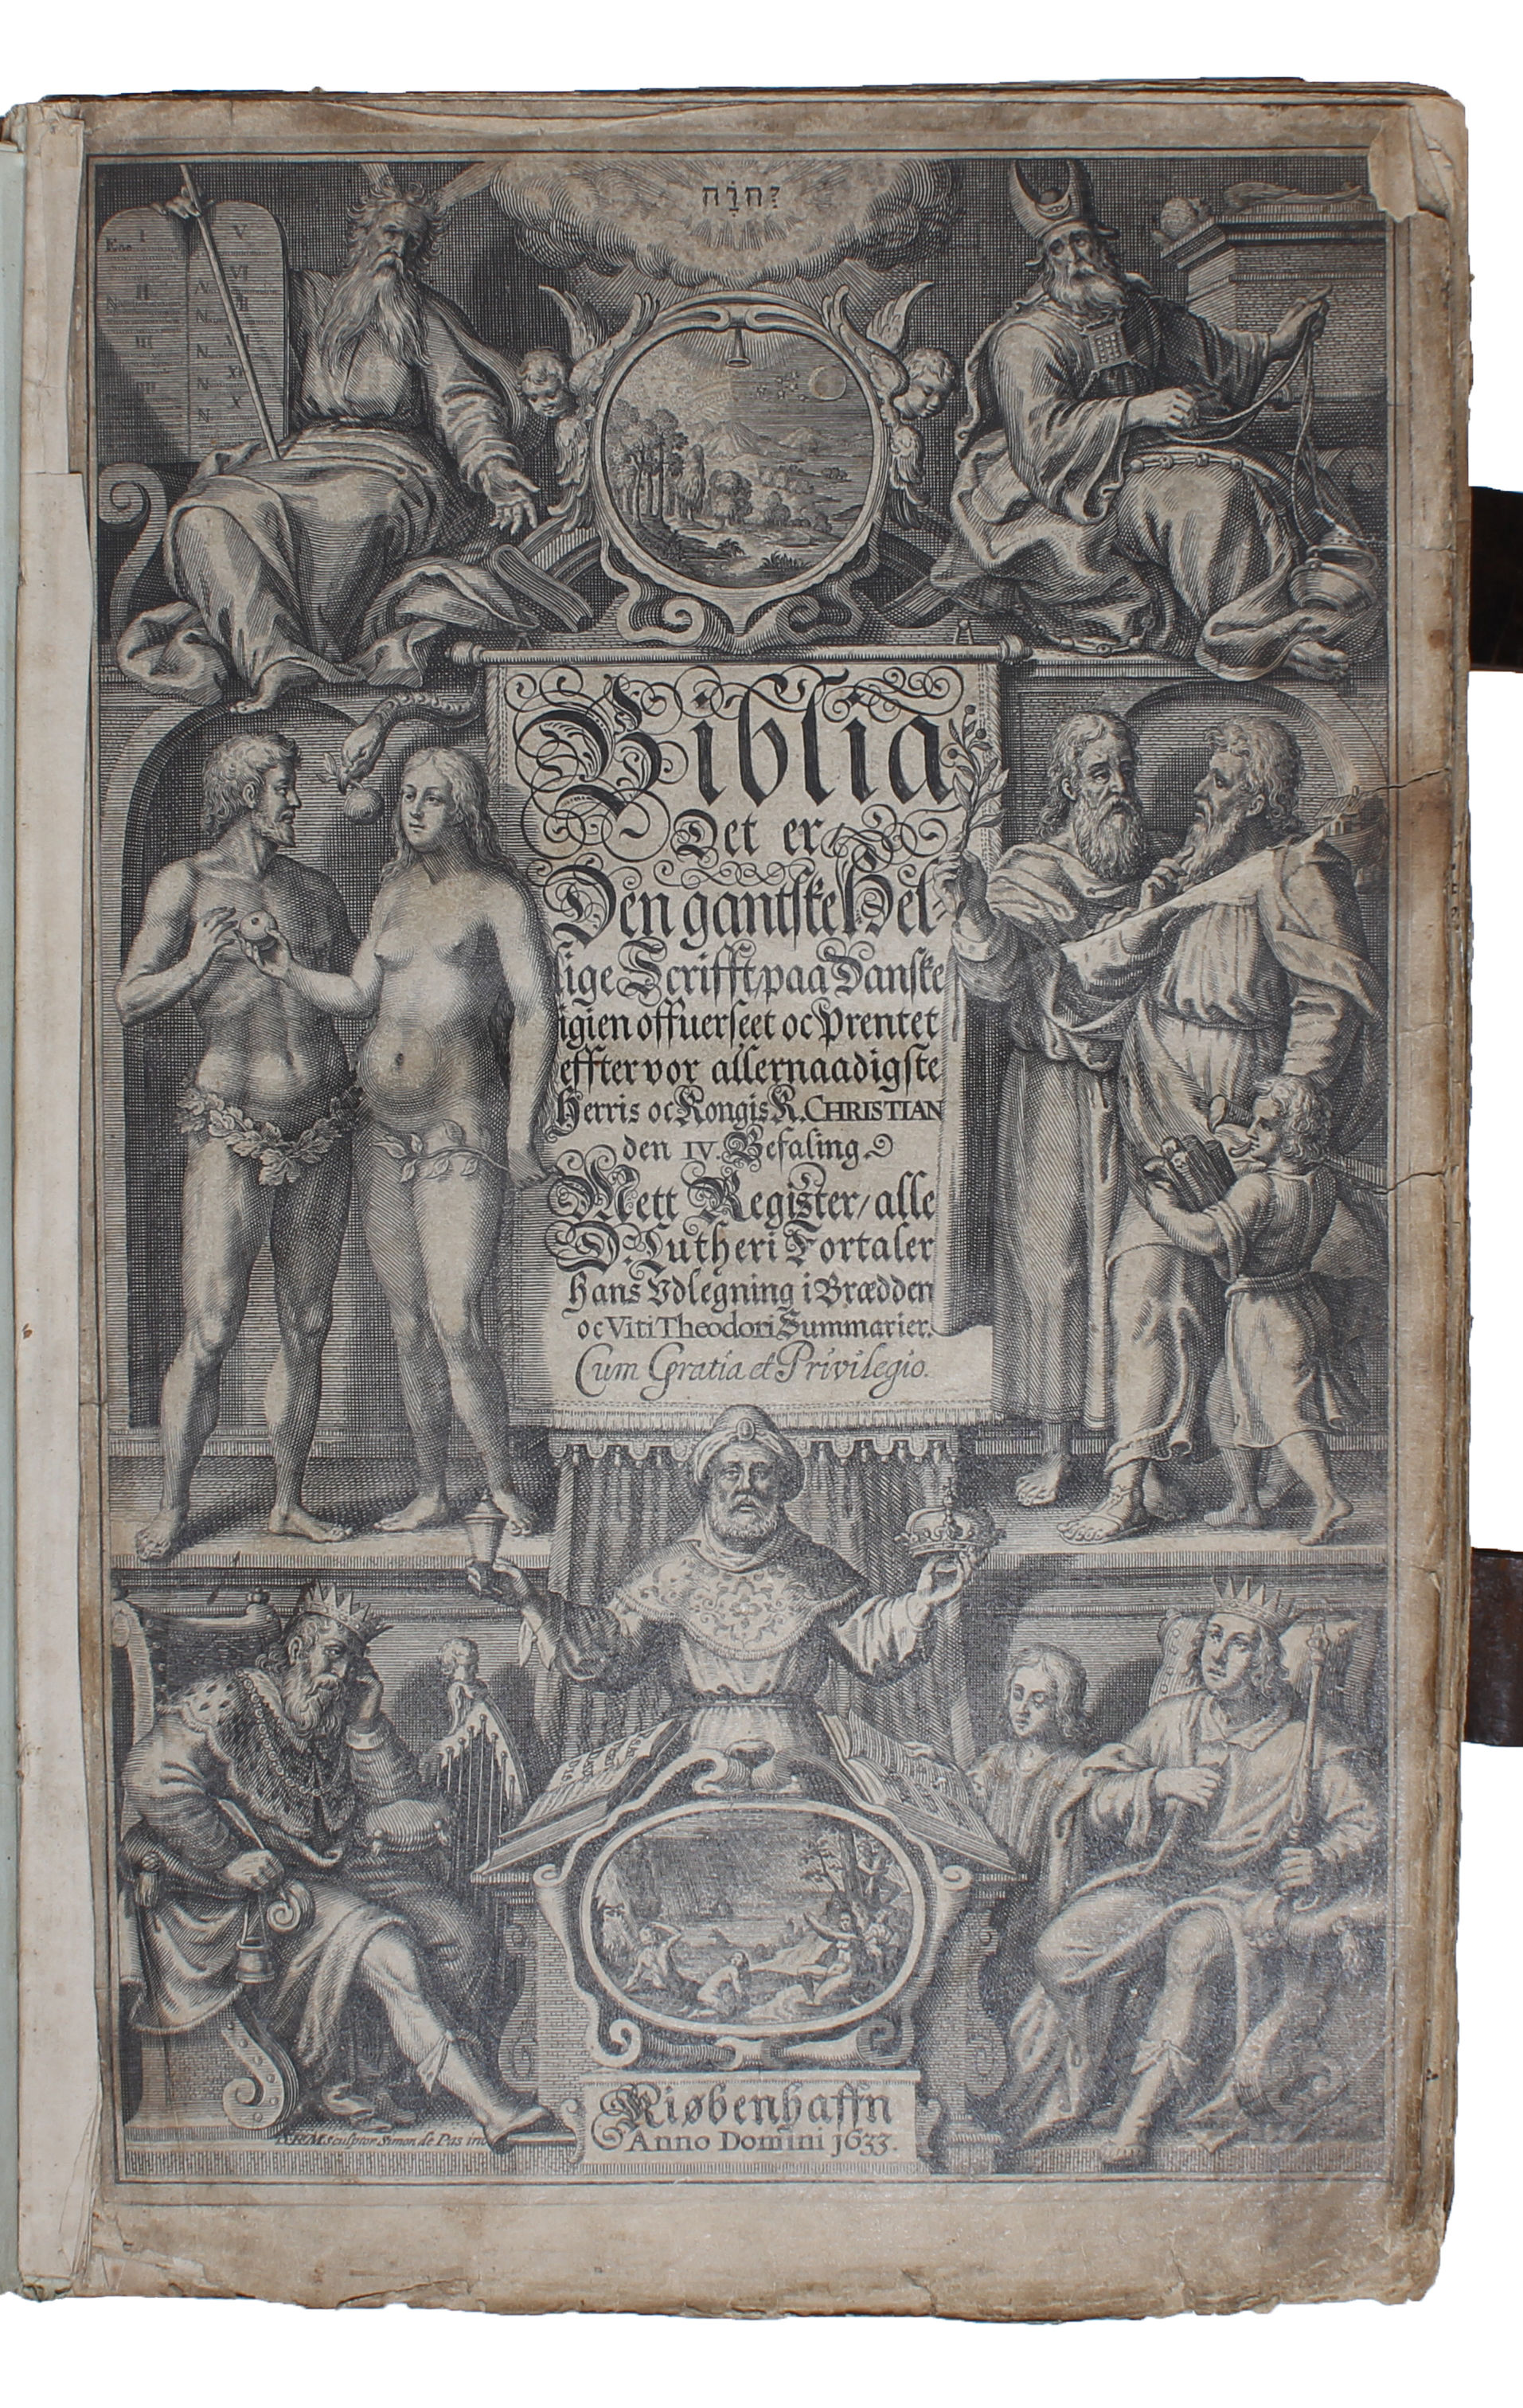 יְהוָֹה
I
V
II
VI
III
IX
X
Biblia
Det er
Den gantske Hel-
lige Scrifft/paa Danske
igien offuerseet oc Prentet
effter vor allernaadigste
Herris oc Kongis K. CHRISTIAN
den IV. Befaling
Mett Register/alle
D. Lutheri Fortaler
hans Vdlegning i Brædden
oc Viti Theodori Summarier.
Cum Gratia et Privilegio.
sculptor Simon de Pas in
Kiøbenhaffn
Anno Domini 1633.